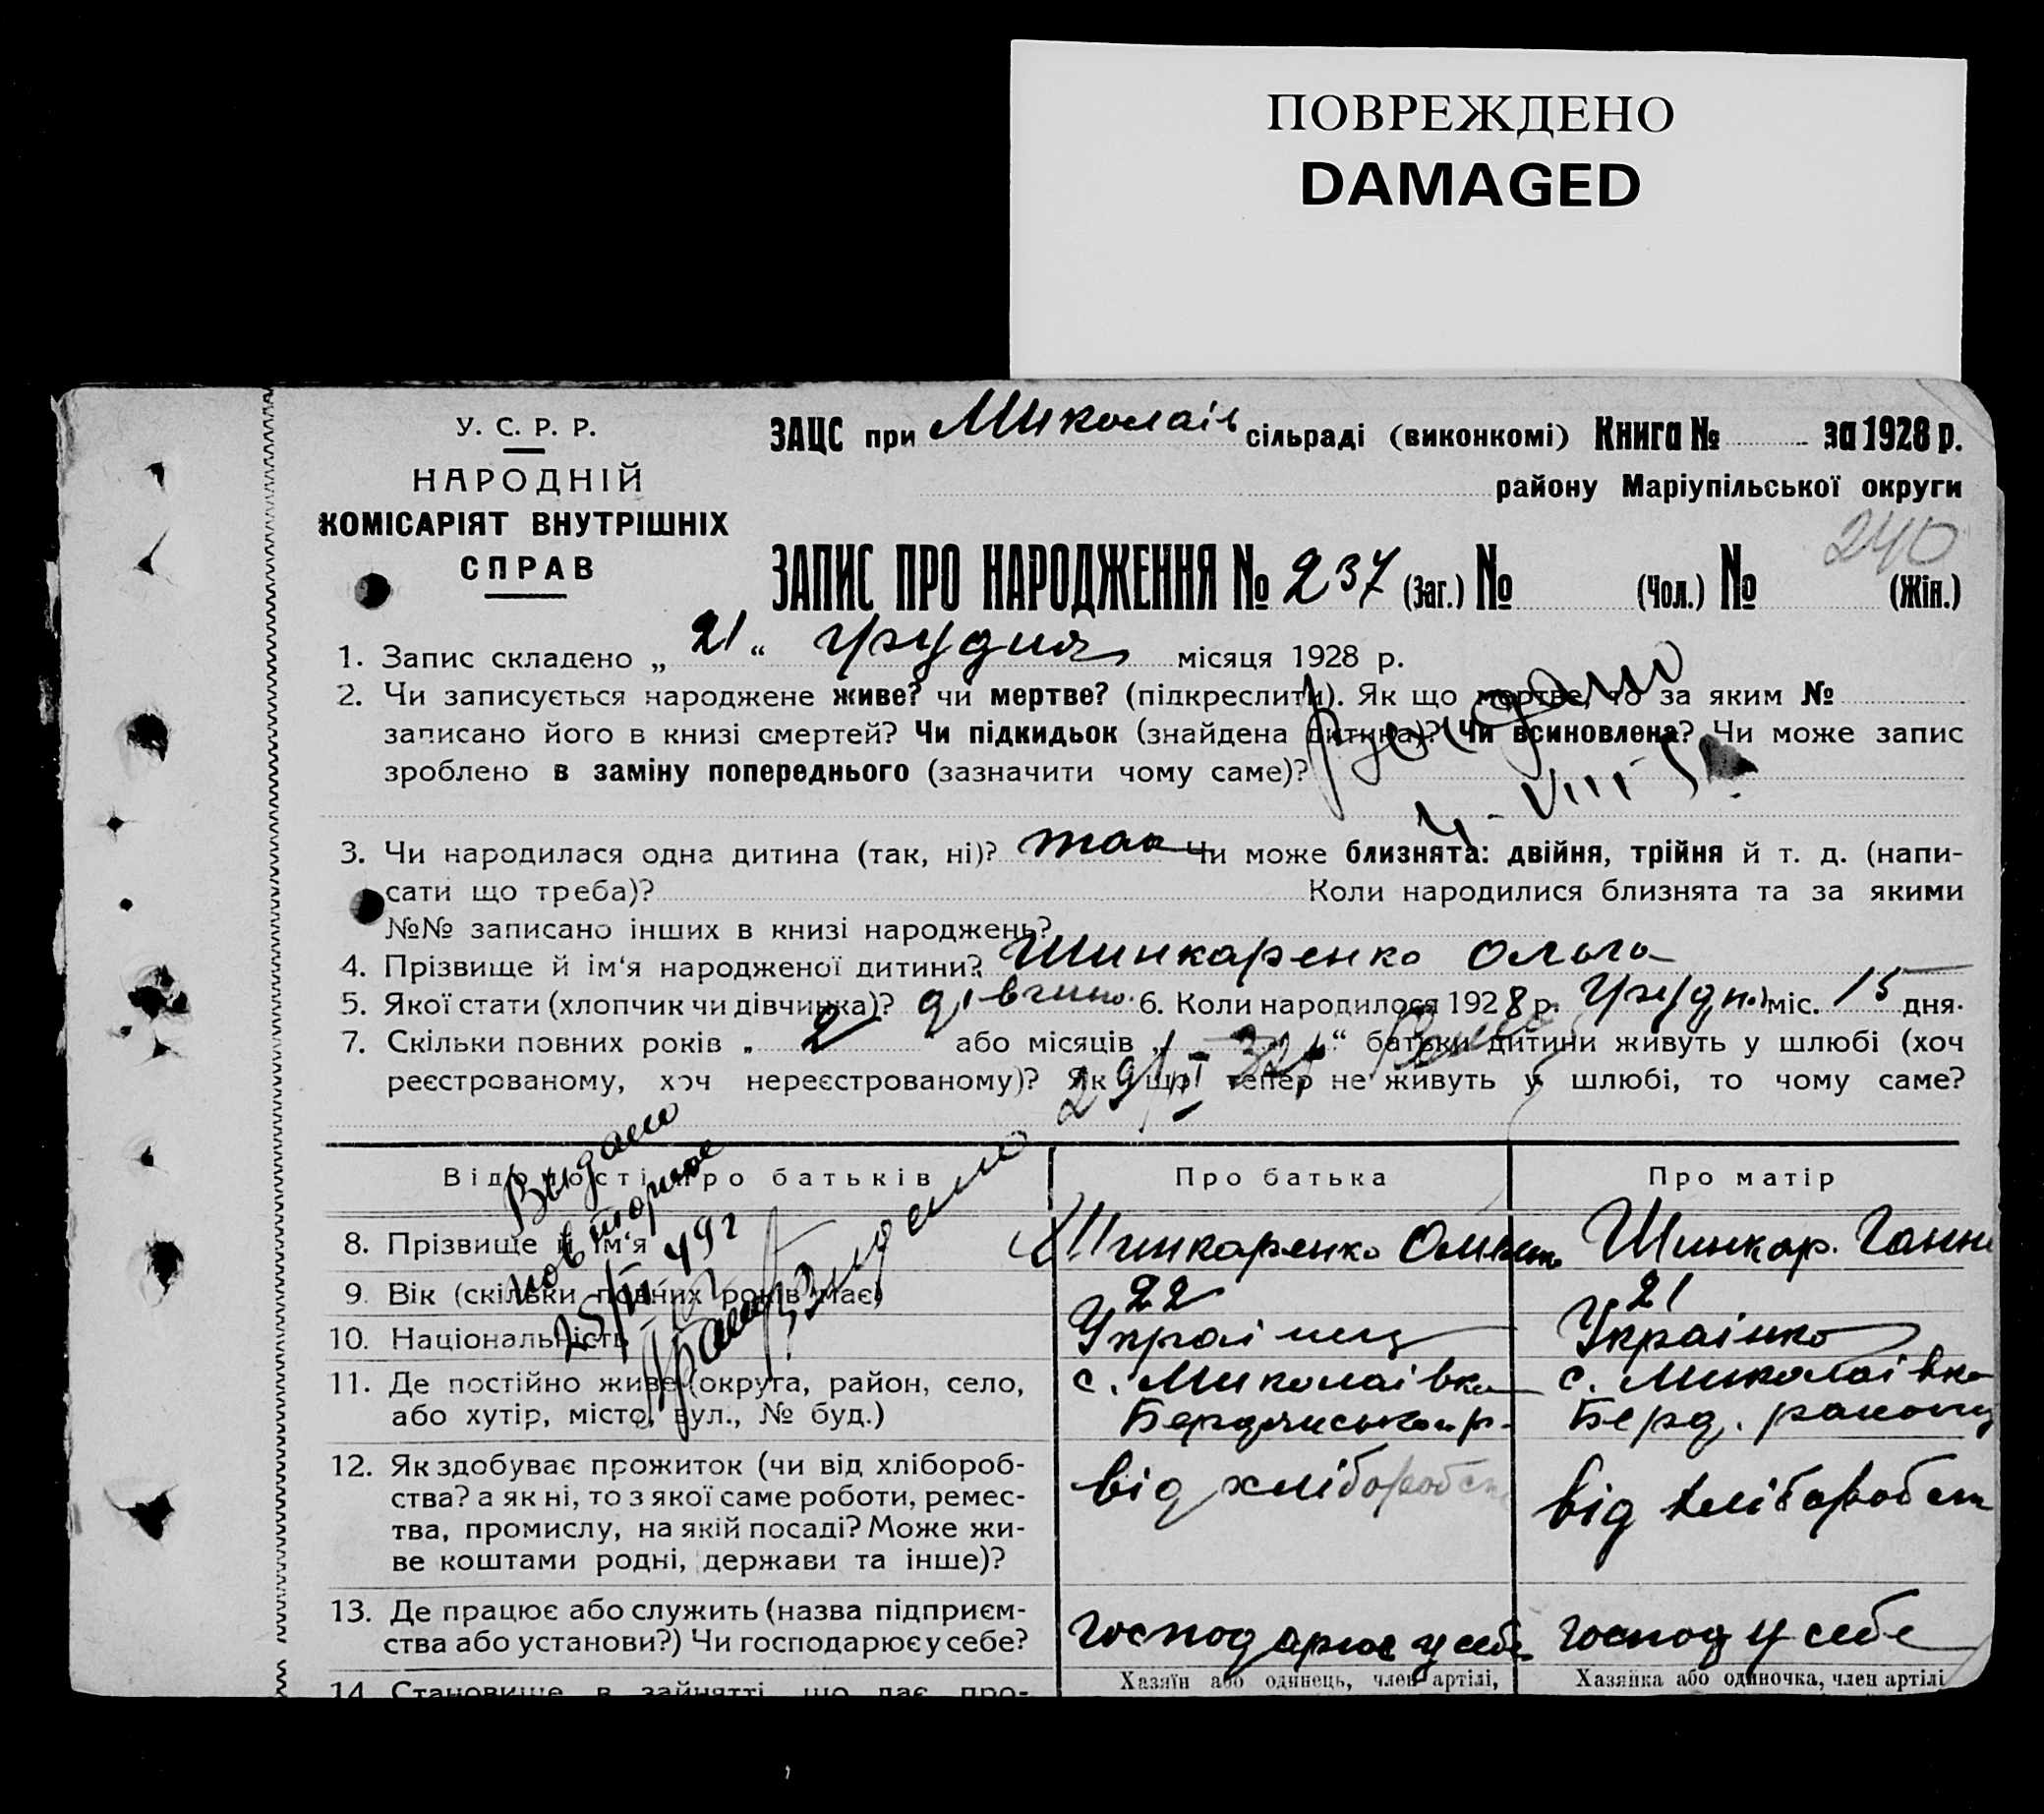 ПОВРЕЖДЕНО
DAMAGED
У. С. Р. Р.
НАРОДНІЙ
КОМІСАРІЯТ ВНУТРІШНІХ
СПРАВ
ЗАЦС при Миколаів сільраді (виконкомі) Книга № за 1928 р.
району Маріупільської округи
240
ЗАПИС ПРО НАРОДЖЕННЯ № 237 (Заг.) № (Чол.) № (Жін.)
1. Запис складено „ 21 “ грудня місяця 1928 р.
2. Чи записується народжене живе? чи мертве? (підкреслити). Як що мертве, то за яким №
записано його в книзі смертей? Чи підкидьок (знайдена дитина)? Чи всиновлена? Чи може запис
зроблено в заміну попереднього (зазначити чому саме)?
3. Чи народилася одна дитина (так, ні)? так Чи може близнята: двійня, трійня й т. д. (напи-
сати що треба)? Коли народилися близнята та за якими
№№ записано інших в книзі народжень?
4. Прізвище й ім‘я народженої дитини? Шинкаренко Ольга
5. Якої стати (хлопчик чи дівчинка)? дівчина 6. Коли народилося 1928 р. Грудня міс. 15 дня.
7. Скільки повних років „ 2 або місяців „ “ батьки дитини живуть у шлюбі (хоч
реєстрованому, хоч нереєстрованому)? Як що тепер не живуть у шлюбі, то чому саме?
Выдано
повторное
49г
Відомості про батьків Про батька Про матір
8. Прізвище й ім‘я Шинкаренко Шинкар. Ганна
9. Вік (скільки повних років має) 22 21
10. Національність Украінец Украінка
11. Де постійно живе (округа, район, село, с. Миколаівка с. Миколаівка
або хутір, місто, вул., № буд.) Бердянськ р. Берд. району
12. Як здобуває прожиток (чи від хлібороб- від хлібороботст від хліборобст
ства? а як ні, то з якої саме роботи, ремес-
тва, промислу, на якій посаді? Може жи-
ве коштами родні, держави та інше)?
13. Де працює або служить (назва підприєм- господарює у себе господ у себе
ства або установи?) Чи господарює у себе?
14. Становище в зайнятті, що дає про- Хазяїн або одинець, член артілі, Хазяйка або одиночка, член артілі